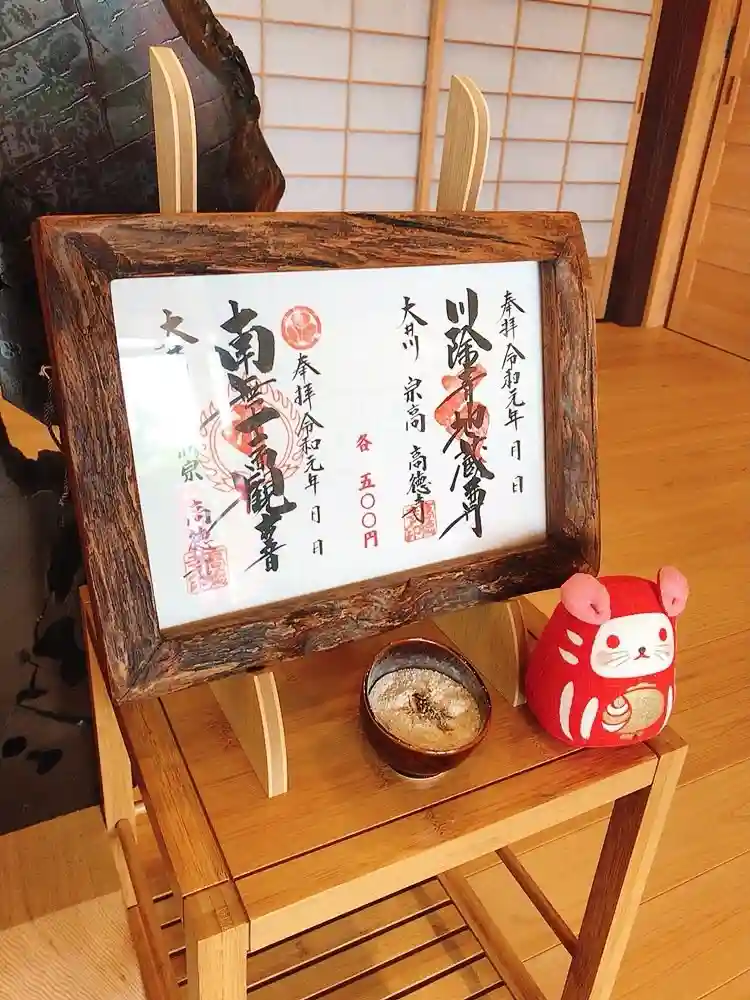 奉拝 令和元年 月 日
川除地蔵尊
大井川 宗高 高徳寺
各 五〇〇円
奉拝 令和元年 月 日
南無十一面観世音
大
宗
高徳寺